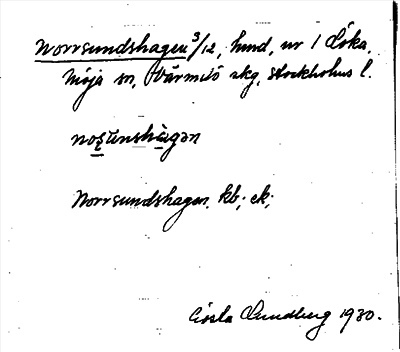 Norrsundshagen 3/12, hmd, nr 1 Löka,
Möja sn, Värmdö skg, Stockholms l.
Norrsundshagen, kb; ek;
Gösta Lundberg 1930.